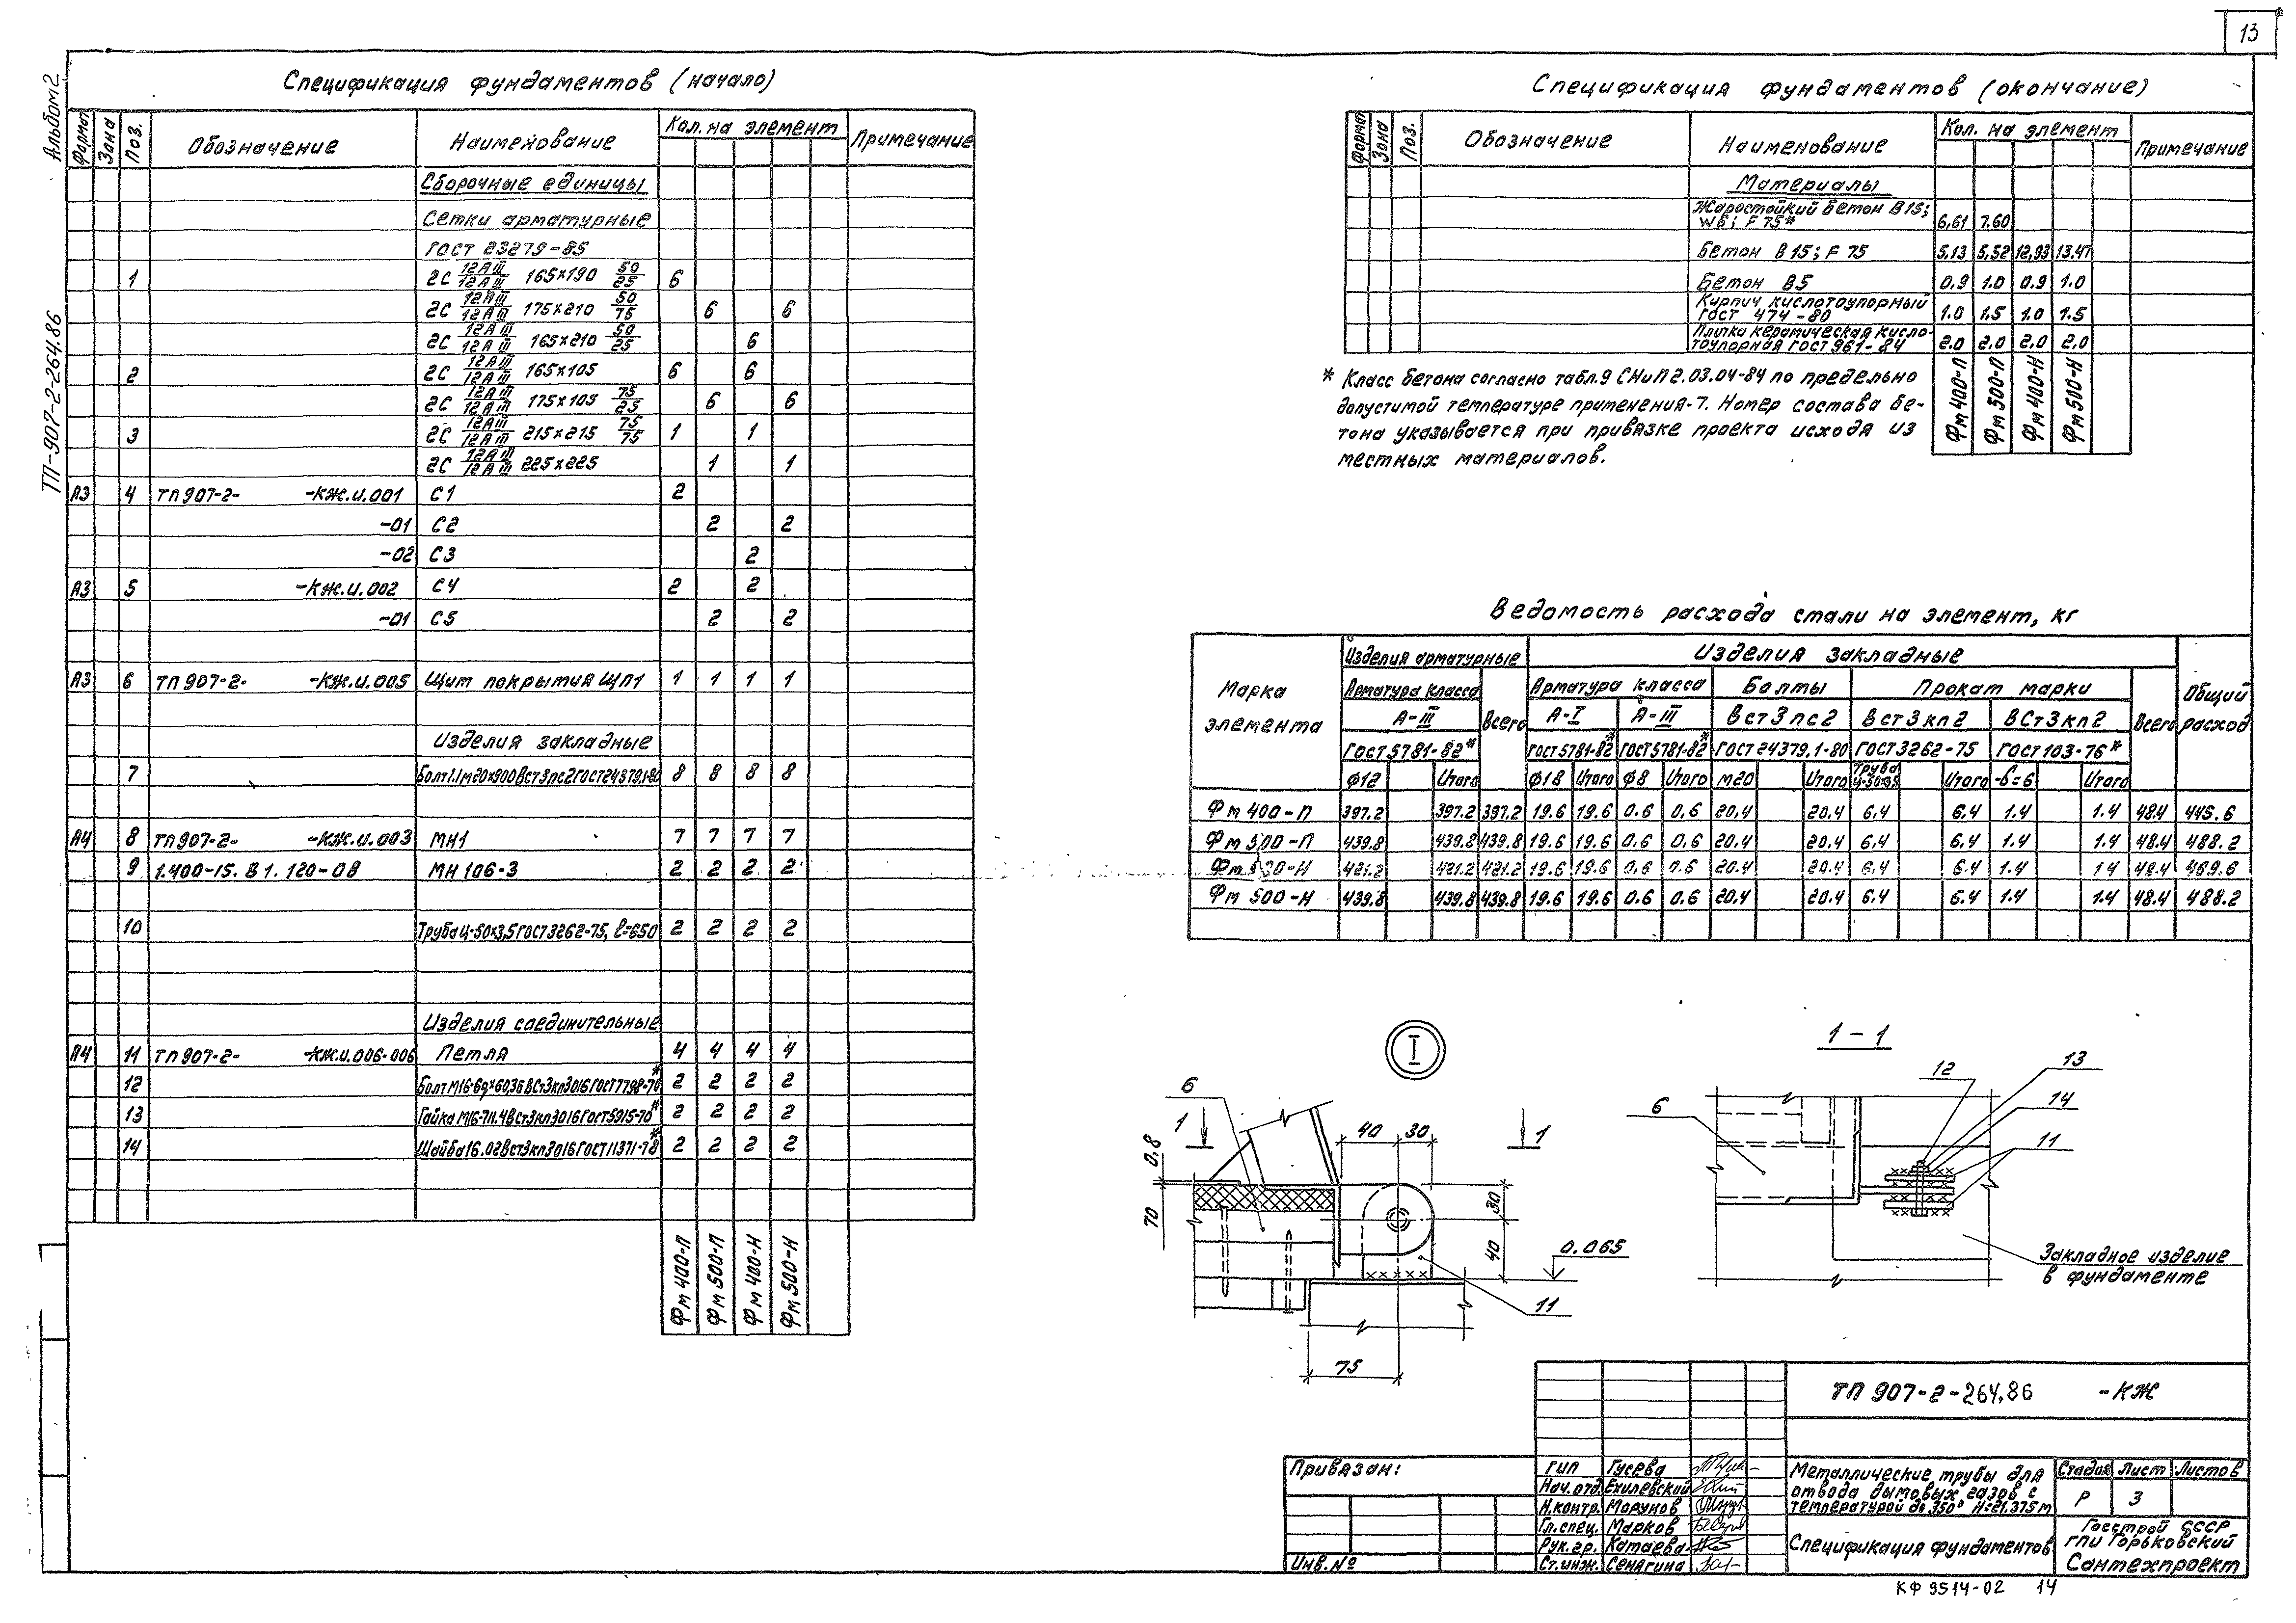 13
Альбом 2
ТП-907-2-264.86
Спецификация фундаментов (начало)
Формат Зона Поз. Обозначение Наименование Кол. на элемент Примечание
Сборочные единицы
Сетки арматурные
ГОСТ 23279-85
1 2С 12АIII/12АIII 165×190 50/25 6
2С 12АIII/12АIII 175×210 50/75 6 6
2С 12АIII/12АIII 165×210 50/25 6
2 2С 12АIII/12АIII 165×105 6 6
2С 12АIII/12АIII 175×105 75/25 6 6
3 2С 12АIII/12АIII 215×215 75/75 1 1
2С 12АIII/12АIII 225×225 1 1
А3 4 ТП907-2- -КЖ.И.001 С1 2
-01 С2 2 2
-02 С3 2
А3 5 -КЖ.И.002 С4 2 2
-01 С5 2 2
А3 6 ТП907-2- -КЖ.И.005 Щит покрытия ЩП1 1 1 1 1
Изделия закладные
7 Болт1.1М20×900ВСт3пс2ГОСТ24379.1-80 8 8 8 8
А4 8 ТП907-2- -КЖ.И.003 МН1 7 7 7 7
9 1.400-15. В1. 120-08 МН 106-3 2 2 2 2
10 Труба Ц-50×3,5 ГОСТ3262-75, ℓ=650 2 2 2 2
Изделия соединительные
А4 11 ТП907-2- -КЖ.И.006-006 Петля 4 4 4 4
12 Болт М16-6g×60.36ВСт3кп3016ГОСТ7798-70* 2 2 2 2
13 Гайка М16-7Н.4ВСт3кп3016ГОСТ5915-70* 2 2 2 2
14 Шайба16.02ВСт3кп3016ГОСТ11371-78* 2 2 2 2
Фм 400-П
Фм 500-П
Фм 400-Н
Фм 500-Н
Спецификация фундаментов (окончание)
Формат Зона Поз. Обозначение Наименование Кол. на элемент Примечание
Материалы
Жаростойкий бетон В15;
W6; F75* 6,61 7.60
Бетон В15; F75 5,13 5,52 12,93 13.47
Бетон В5 0.9 1.0 0.9 1.0
Кирпич кислотоупорный
ГОСТ 474-80 1.0 1.5 1.0 1.5
Плитка керамическая кисло-
тоупорная ГОСТ961-84 2,0 2,0 2,0 2,0
Фм 400-П
Фм 500-П
Фм 400-Н
Фм 500-Н
* Класс бетона согласно табл.9 СНиП2.03.04-84 по предельно
допустимой температуре применения-7. Номер состава бе-
тона указывается при привязке проекта исходя из
местных материалов.
Ведомость расхода стали на элемент, кг
Марка элемента Изделия арматурные Изделия закладные Общий расход
Арматура класса Всего Арматура класса Болты Прокат марки Всего
А-III А-I А-III Вст3пс2 Вст3кп2 ВСт3кп2
ГОСТ5781-82* ГОСТ5781-82* ГОСТ5781-82* ГОСТ24379.1-80 ГОСТ3262-75 ГОСТ103-76*
Ф12 Итого Ф18 Итого Ф8 Итого М20 Итого Труба Ц-50×3,5 Итого -δ=6 Итого
Фм 400-П 397.2 397.2 397.2 19.6 19.6 0.6 0.6 20.4 20.4 6.4 6.4 1.4 1.4 48.4 445.6
Фм 500-П 439.8 439.8 439.8 19.6 19.6 0.6 0.6 20.4 20.4 6.4 6.4 1.4 1.4 48.4 488.2
Фм -Н 421.2 421.2 421.2 19.6 19.6 0.6 0.6 20.4 20.4 6.4 6.4 1.4 1.4 48.4 469.6
Фм 500-Н 439.8 439.8 439.8 19.6 19.6 0.6 0.6 20.4 20.4 6.4 6.4 1.4 1.4 48.4 488.2
I
6
1
1
40 30
0.8
70
30
40
0.065
11
75
1-1
12
13
14
11
6
Закладное изделие
в фундаменте
ТП 907-2-264.86 -КЖ
Привязан:
Инв.№
ГИП Гусева
Нач.отд. Ехилевский
Н.контр. Морунов
Гл.спец. Марков
Рук.гр. Катаева
Ст.инж. Сенягина
Металлические трубы для
отвода дымовых газов с
температурой до 350° Н=21.375м
Стадия Лист Листов
Р 3
Спецификация фундаментов
Госстрой СССР
ГПИ Горьковский
Сантехпроект
КФ 9514-02 14